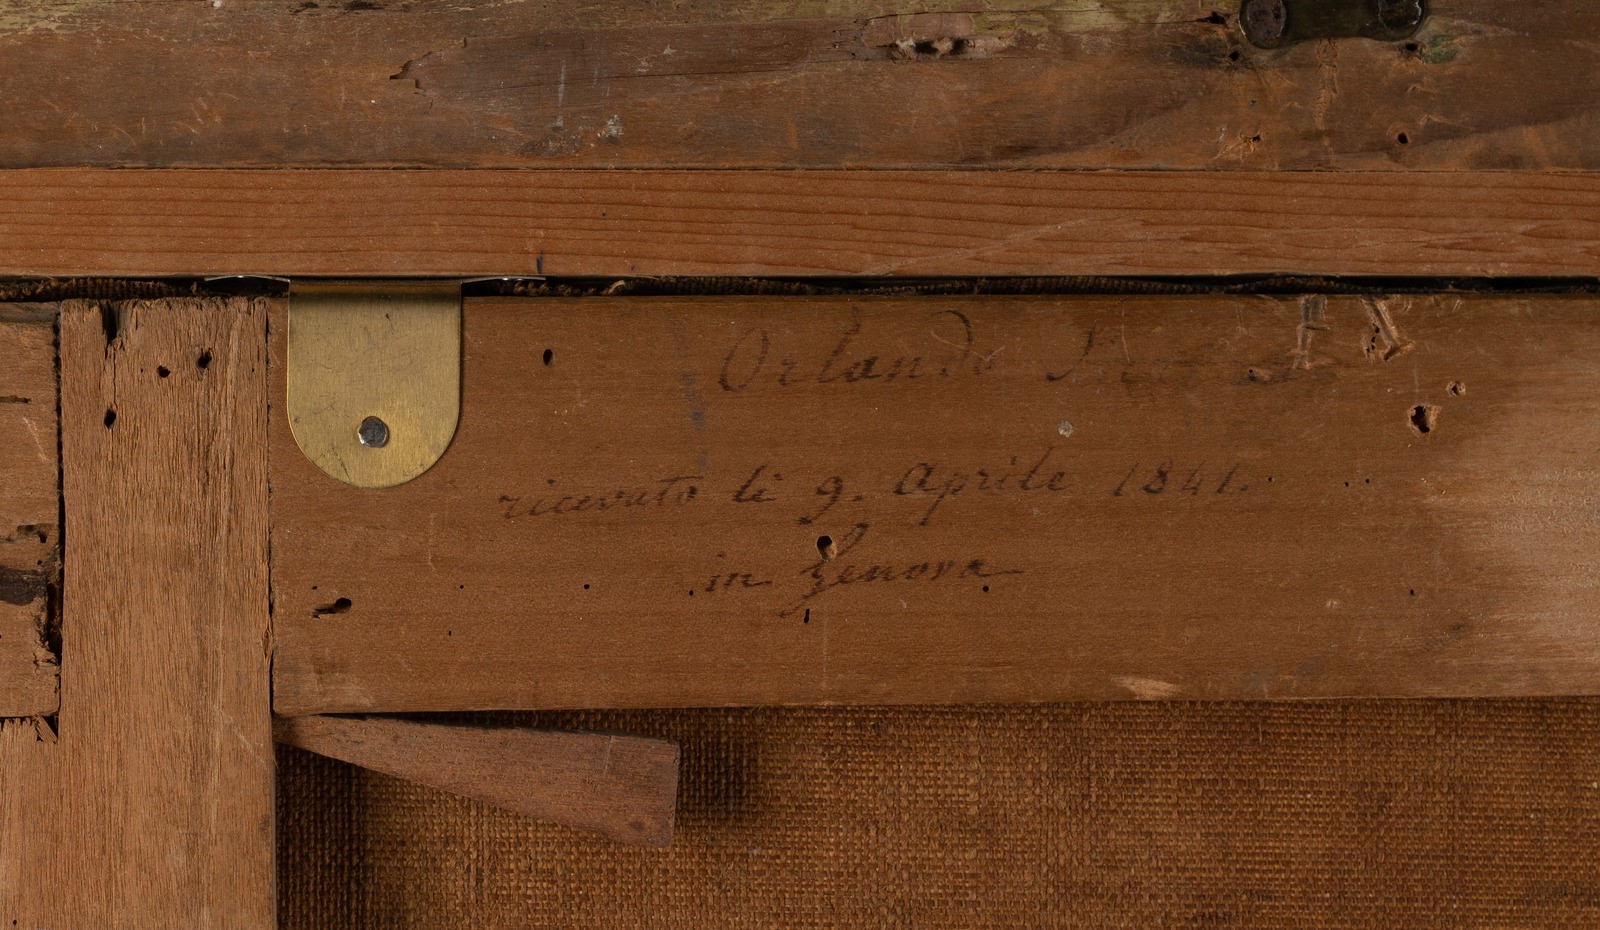 Orlando
ricevuto li 9. Aprile 1841.
in Genova